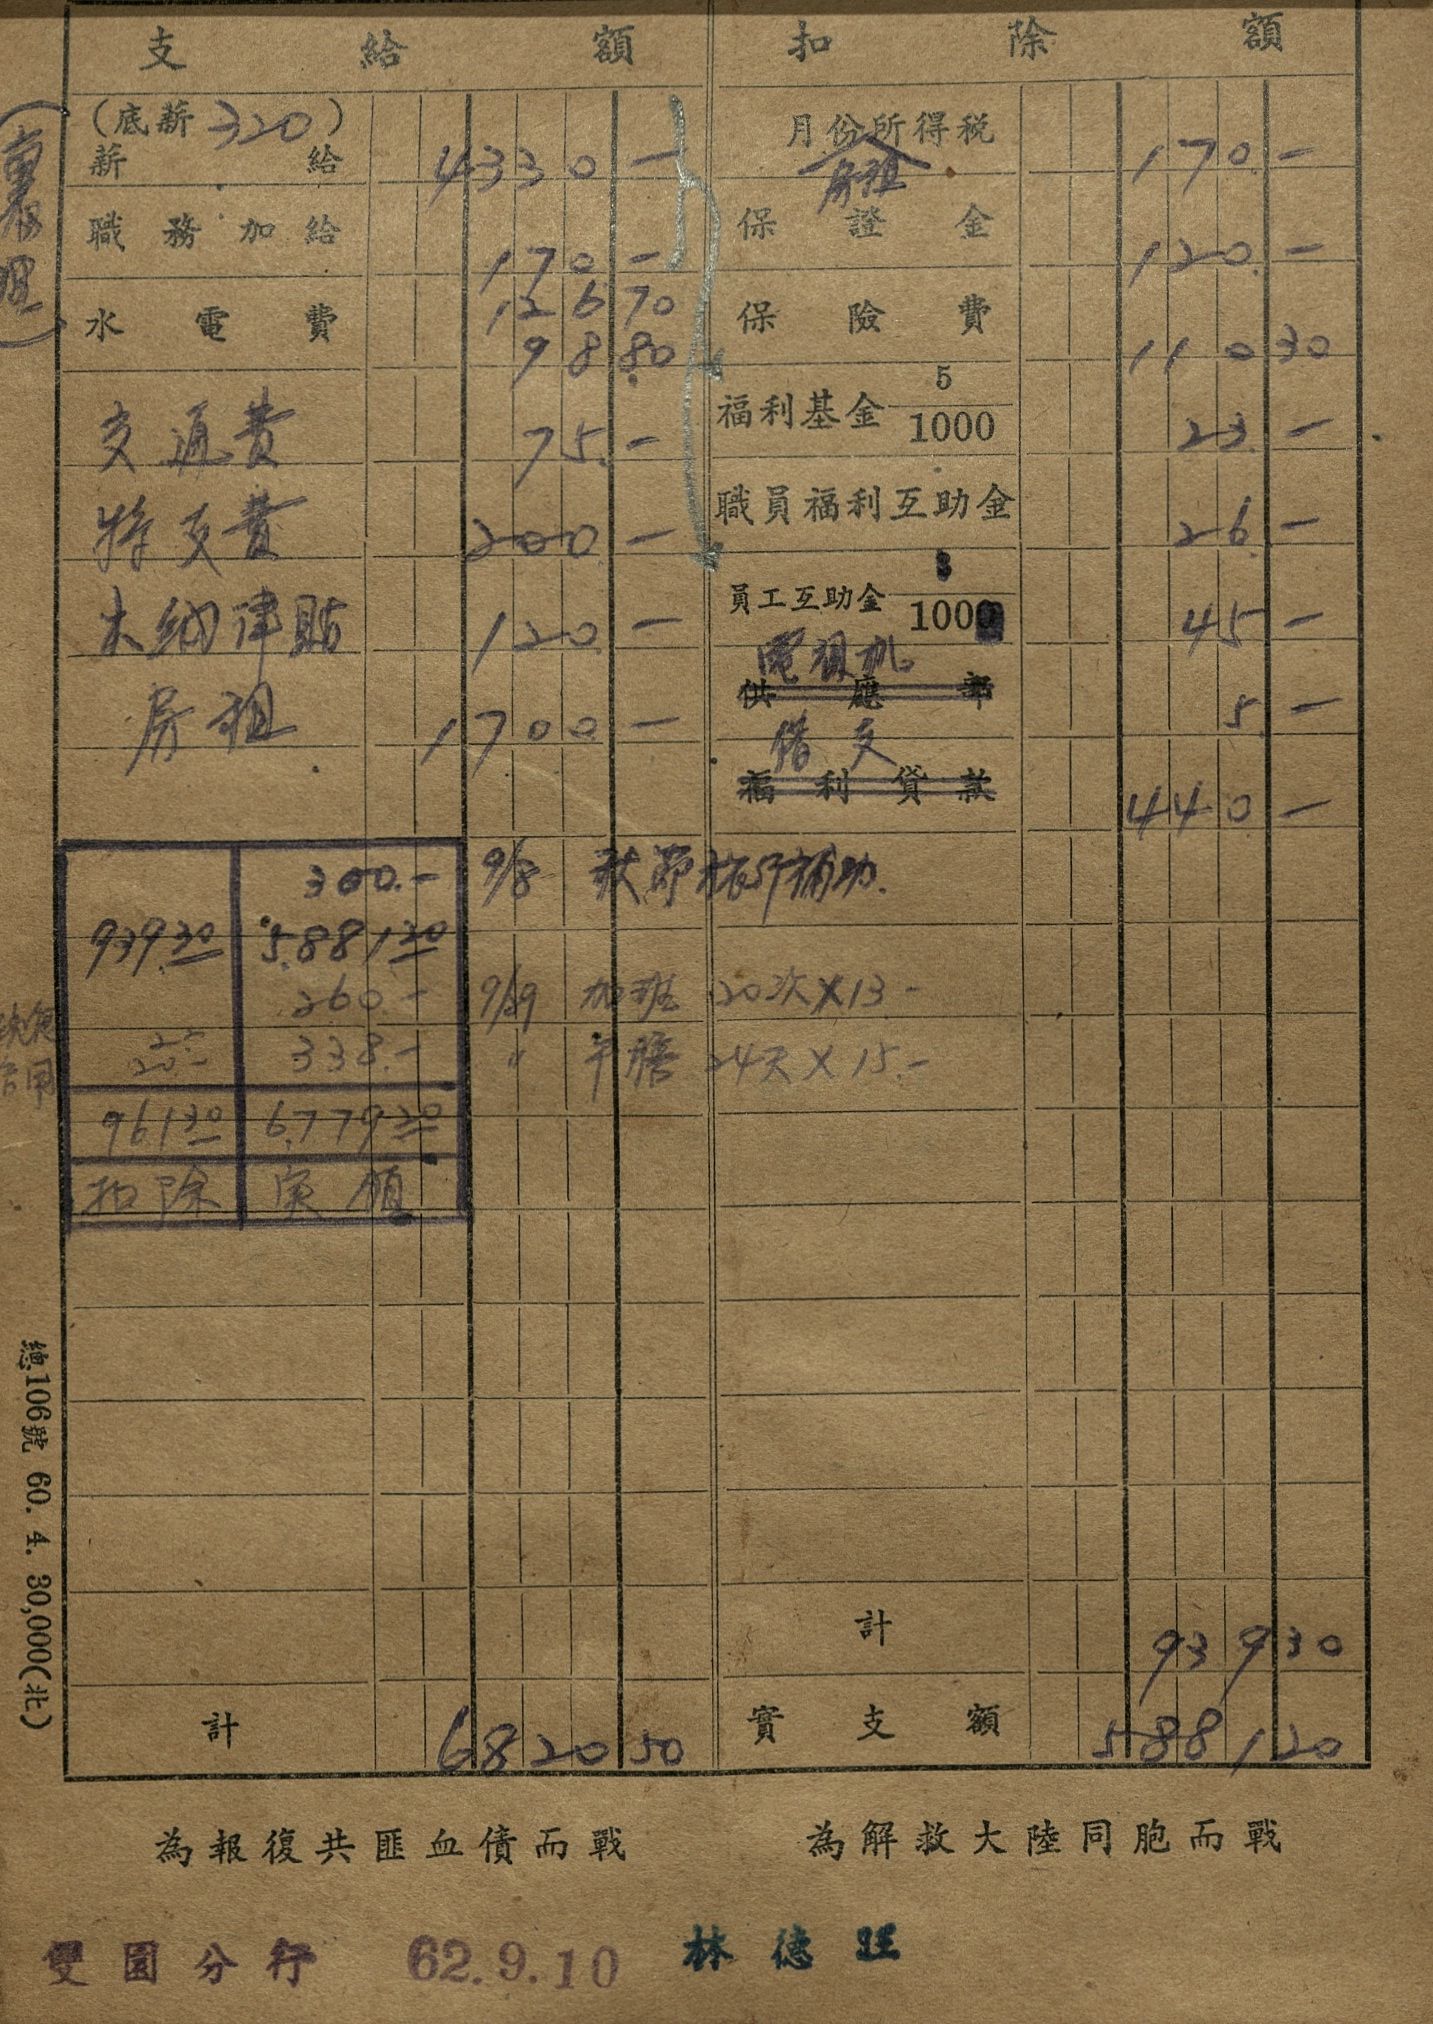 支給額
(底薪 320)
薪給 4330 —
職務加給 170 —
水電費 126 70
98 80
交通費 75. —
特支費 200 —
120 —
房租 1700 —
300. —
939.30 5.881 30
260. —
338. —
961 30 6,779 30
扣除 实領
計 6820 50
扣除額
月份所得稅 170. —
房租
保證金 120. —
保險費 110 30
福利基金 5/1000 23. —
職員福利互助金 26. —
員工互助金 1000 45 —
電視机
供應部 5 —
借支
福利貸款 440 —
9/8 秋節旅行補助.
9/29 加班 20次×13 —
〃 午膳 24天×15. —
計 939 30
實支額 5881 20
總106號 60. 4. 30,000(北)
為報復共匪血債而戰
為解救大陸同胞而戰
雙園分行 62.9.10 林德旺